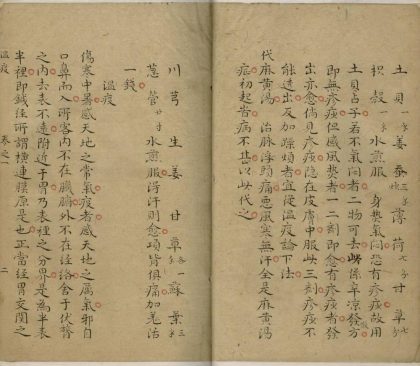 土貝一錢 姜蚕三錢 薄荷七分 甘草七分
枳殼一錢 水煎服 身热氣悶恐有疹痰故用
土貝占子若不氣悶者二物可去此係辛凉發方
即無疹痰但感風热者一二剂即愈有疹痰者發
出亦愈倘見疹痰隐在皮膚中服此三剂疹痰不
能透出反加躁煩者宜從温疫論下法
代麻黄湯 治脉浮頭痛惡風寒無汗全是麻黄湯
症初起皆病不止以此代之
川芎 生姜 甘草各一 蘇葉三
葱管廿寸 水煎服得汗則愈項背俱痛加羌活
一錢
温疫
傷寒中暑感天地之常氣疫者感天地之厲氣邪自
口鼻而入所客内不在臟腑外不在經絡舍于伏膂
之内去表不遠附近于胃乃表裡之分界是爲半表
半裡即鍼經所謂横連膜原是也正當經胃交関之
温疫 卷之一 二